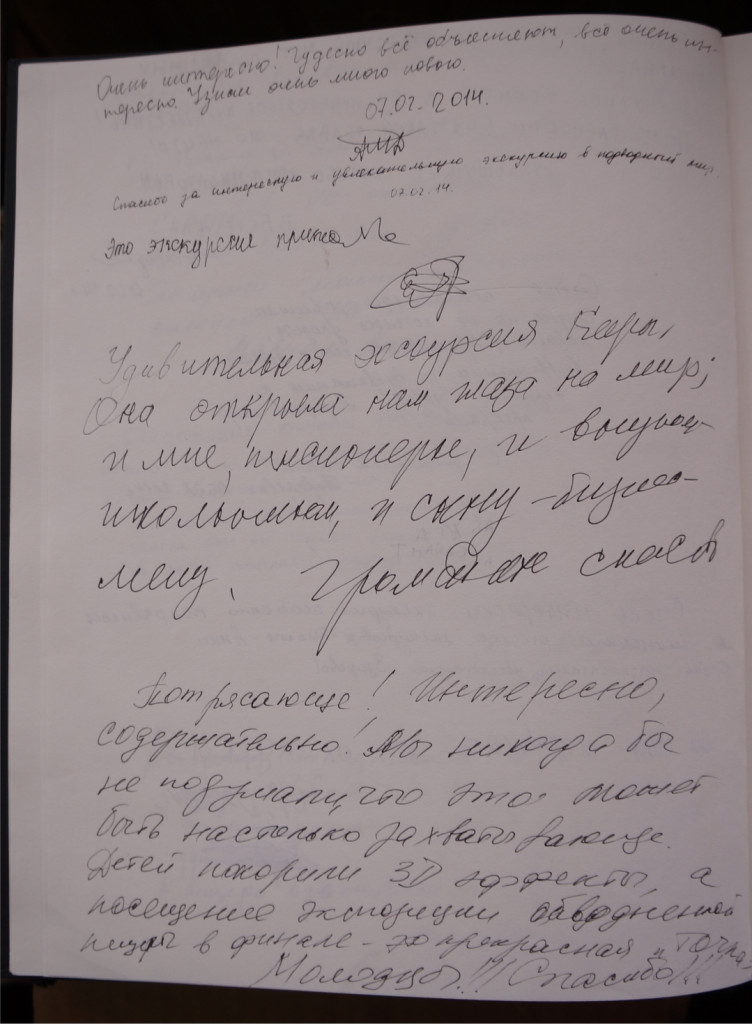 Очень интересно! Чудесно всё объесняют, всё очень ин-
тересно. Узнали очень много нового.
07.02.2014.
Спасибо за интересную и увлекательную экскурсию в подводный мир
07.02.14.
Это экскурсие
Удивительная экскурсия
Она открыла нам глаза на мир;
и мне, пенсионерке, и
школьникам, и сыну-бизнес-
мену. Громадное спасибо
Потрясающе! Интересно,
содержательно! Мы никогда бы
не подумали, что это может
быть настолько захватывающе.
Детей покорили 3D эффекты, а
посещение экспозиции обводненной
пещеры в финале - это прекрасная "точка"
Молодцы!!! Спасибо!!!